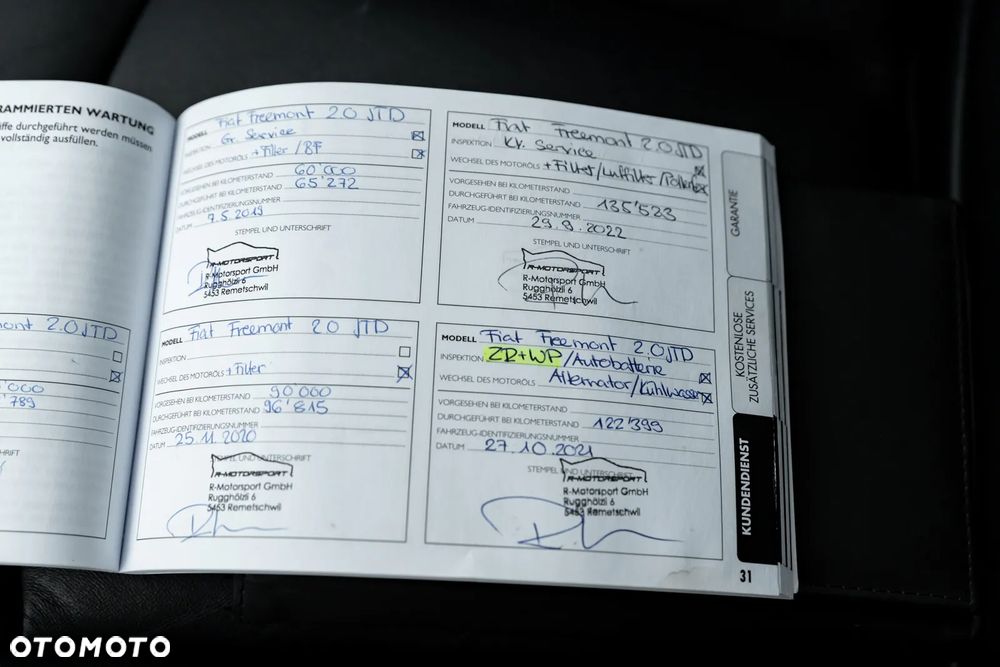 RAMMIERTEN WARTUNG
iffe durchgeführt werden müssen
vollständig ausfüllen.
mont 2.0JTD
000
789
MODELL Fiat Freemont 2.0 JTD
INSPEKTION Gr. Service
WECHSEL DES MOTORÖLS + Filter / BF
VORGESEHEN BEI KILOMETERSTAND 60'000
DURCHGEFÜHRT BEI KILOMETERSTAND 65'272
FAHRZEUG-IDENTIFIZIERUNGSNUMMER
DATUM 7.5.2019
STEMPEL UND UNTERSCHRIFT
R-MOTORSPORT
R-Motorsport GmbH
Rugghölzli 6
5453 Remetschwil
MODELL Fiat Freemont 2.0 JTD
INSPEKTION
WECHSEL DES MOTORÖLS + Filter
VORGESEHEN BEI KILOMETERSTAND 90'000
DURCHGEFÜHRT BEI KILOMETERSTAND 96'815
FAHRZEUG-IDENTIFIZIERUNGSNUMMER
DATUM 25.11.2020
STEMPEL UND UNTERSCHRIFT
R-MOTORSPORT
R-Motorsport GmbH
Rugghölzli 6
5453 Remetschwil
MODELL Fiat Freemont 2.0JTD
INSPEKTION Kl. Service
WECHSEL DES MOTORÖLS + Filter/Luffilter/Pollen
VORGESEHEN BEI KILOMETERSTAND
DURCHGEFÜHRT BEI KILOMETERSTAND 135'523
FAHRZEUG-IDENTIFIZIERUNGSNUMMER
DATUM 29.9.2022
STEMPEL UND UNTERSCHRIFT
R-MOTORSPORT
R-Motorsport GmbH
Rugghölzli 6
5453 Remetschwil
MODELL Fiat Freemont 2.0JTD
INSPEKTION ZR+WP/Autobatterie
WECHSEL DES MOTORÖLS Alternator/Kühlwasser
VORGESEHEN BEI KILOMETERSTAND
DURCHGEFÜHRT BEI KILOMETERSTAND 122'399
FAHRZEUG-IDENTIFIZIERUNGSNUMMER
DATUM 27.10.2021
STEMPEL UND UNTERSCHRIFT
R-MOTORSPORT
R-Motorsport GmbH
Rugghölzli 6
5453 Remetschwil
GARANTIE
KOSTENLOSE
ZUSÄTZLICHE SERVICES
KUNDENDIENST
31
OTOMOTO